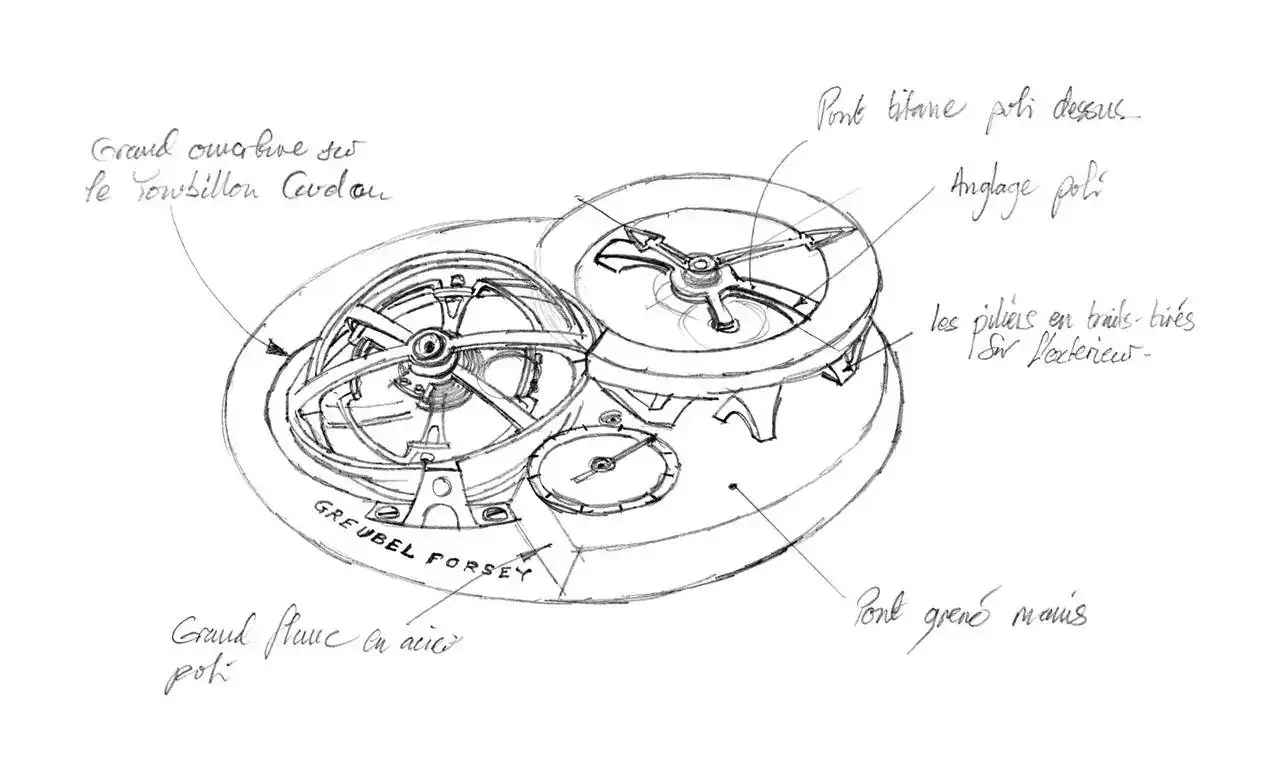 Pont titane poli dessus
Grand ouverture sur
le Tourbillon Cardan
Anglage poli
les piliers en traits-tirés
sur l'exterieur
GREUBEL FORSEY
Pont grené
Grand flanc en acier
poli